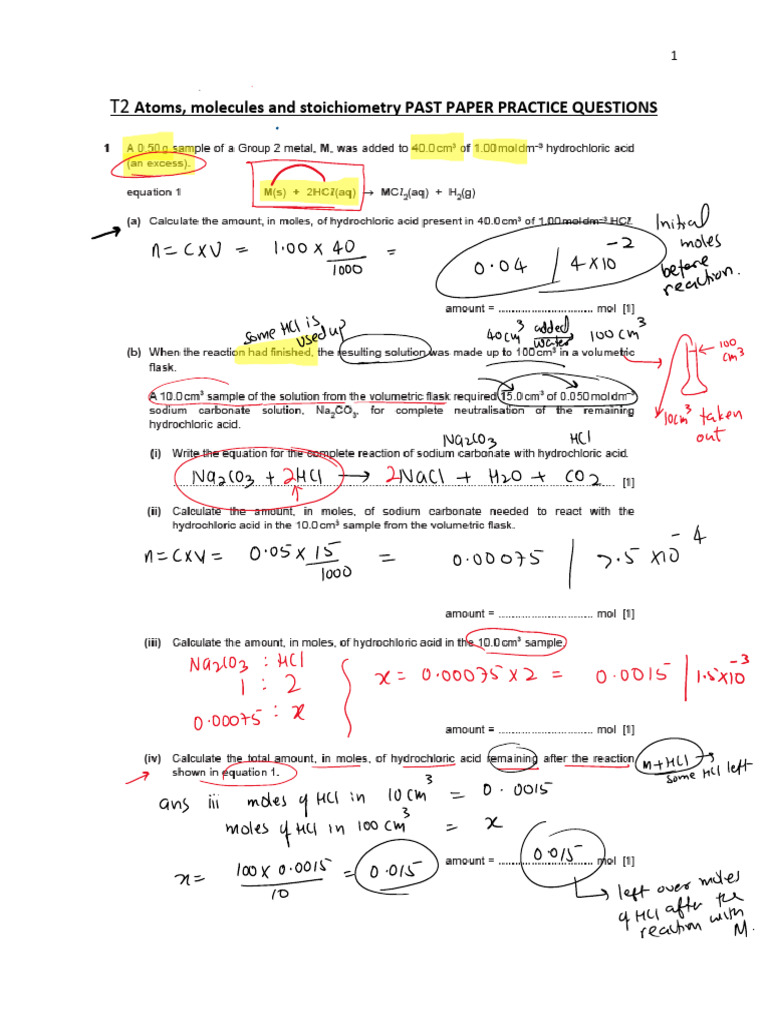 1
T2 Atoms, molecules and stoichiometry PAST PAPER PRACTICE QUESTIONS
1 A 0.50 g sample of a Group 2 metal, M, was added to 40.0 cm³ of 1.00 mol dm⁻³ hydrochloric acid
(an excess).
equation 1 M(s) + 2HCl(aq) → MCl₂(aq) + H₂(g)
(a) Calculate the amount, in moles, of hydrochloric acid present in 40.0 cm³ of 1.00 mol dm⁻³ HCl.
n = C×V = 1.00 × 40/1000 = 0.04 | 4×10⁻²
Initial
moles
before
reaction.
amount = .............................. mol [1]
some HCl is
used up
40cm³ added water → 100 cm³
(b) When the reaction had finished, the resulting solution was made up to 100 cm³ in a volumetric
flask.
100
cm³
A 10.0 cm³ sample of the solution from the volumetric flask required 15.0 cm³ of 0.050 mol dm⁻
sodium carbonate solution, Na₂CO₃, for complete neutralisation of the remaining
hydrochloric acid.
10cm³ taken
out
Na₂CO₃ HCl
(i) Write the equation for the complete reaction of sodium carbonate with hydrochloric acid.
Na₂CO₃ + 2HCl → 2NaCl + H₂O + CO₂ [1]
(ii) Calculate the amount, in moles, of sodium carbonate needed to react with the
hydrochloric acid in the 10.0 cm³ sample from the volumetric flask.
n = C×V = 0.05 × 15/1000 = 0.00075 | 7.5 ×10⁻⁴
amount = .............................. mol [1]
(iii) Calculate the amount, in moles, of hydrochloric acid in the 10.0 cm³ sample
Na₂CO₃ : HCl
1 : 2
0.00075 : x
x = 0.00075 × 2 = 0.0015 | 1.5×10⁻³
amount = .............................. mol [1]
(iv) Calculate the total amount, in moles, of hydrochloric acid remaining after the reaction
shown in equation 1.
M + HCl →
some HCl left
ans iii moles of HCl in 10 cm³ = 0.0015
moles of HCl in 100 cm³ = x
x = 100 × 0.0015/10 = 0.015
amount = 0.015 mol [1]
left over moles
of HCl after the
reaction with
M.